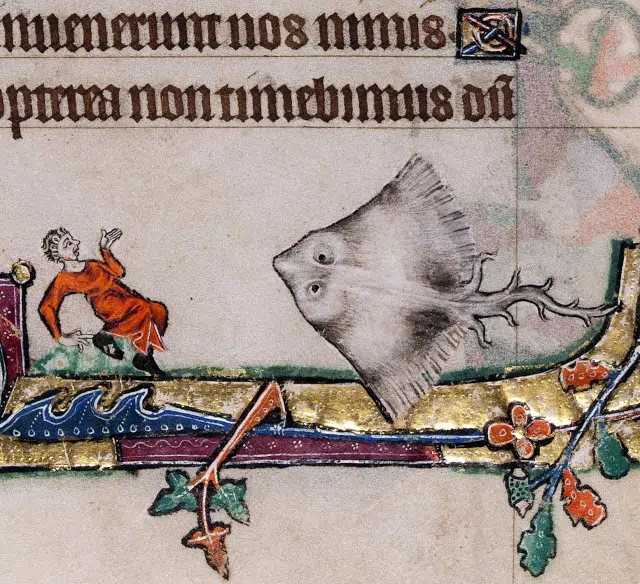 inuenerunt nos nimis
opterea non timebimus dū